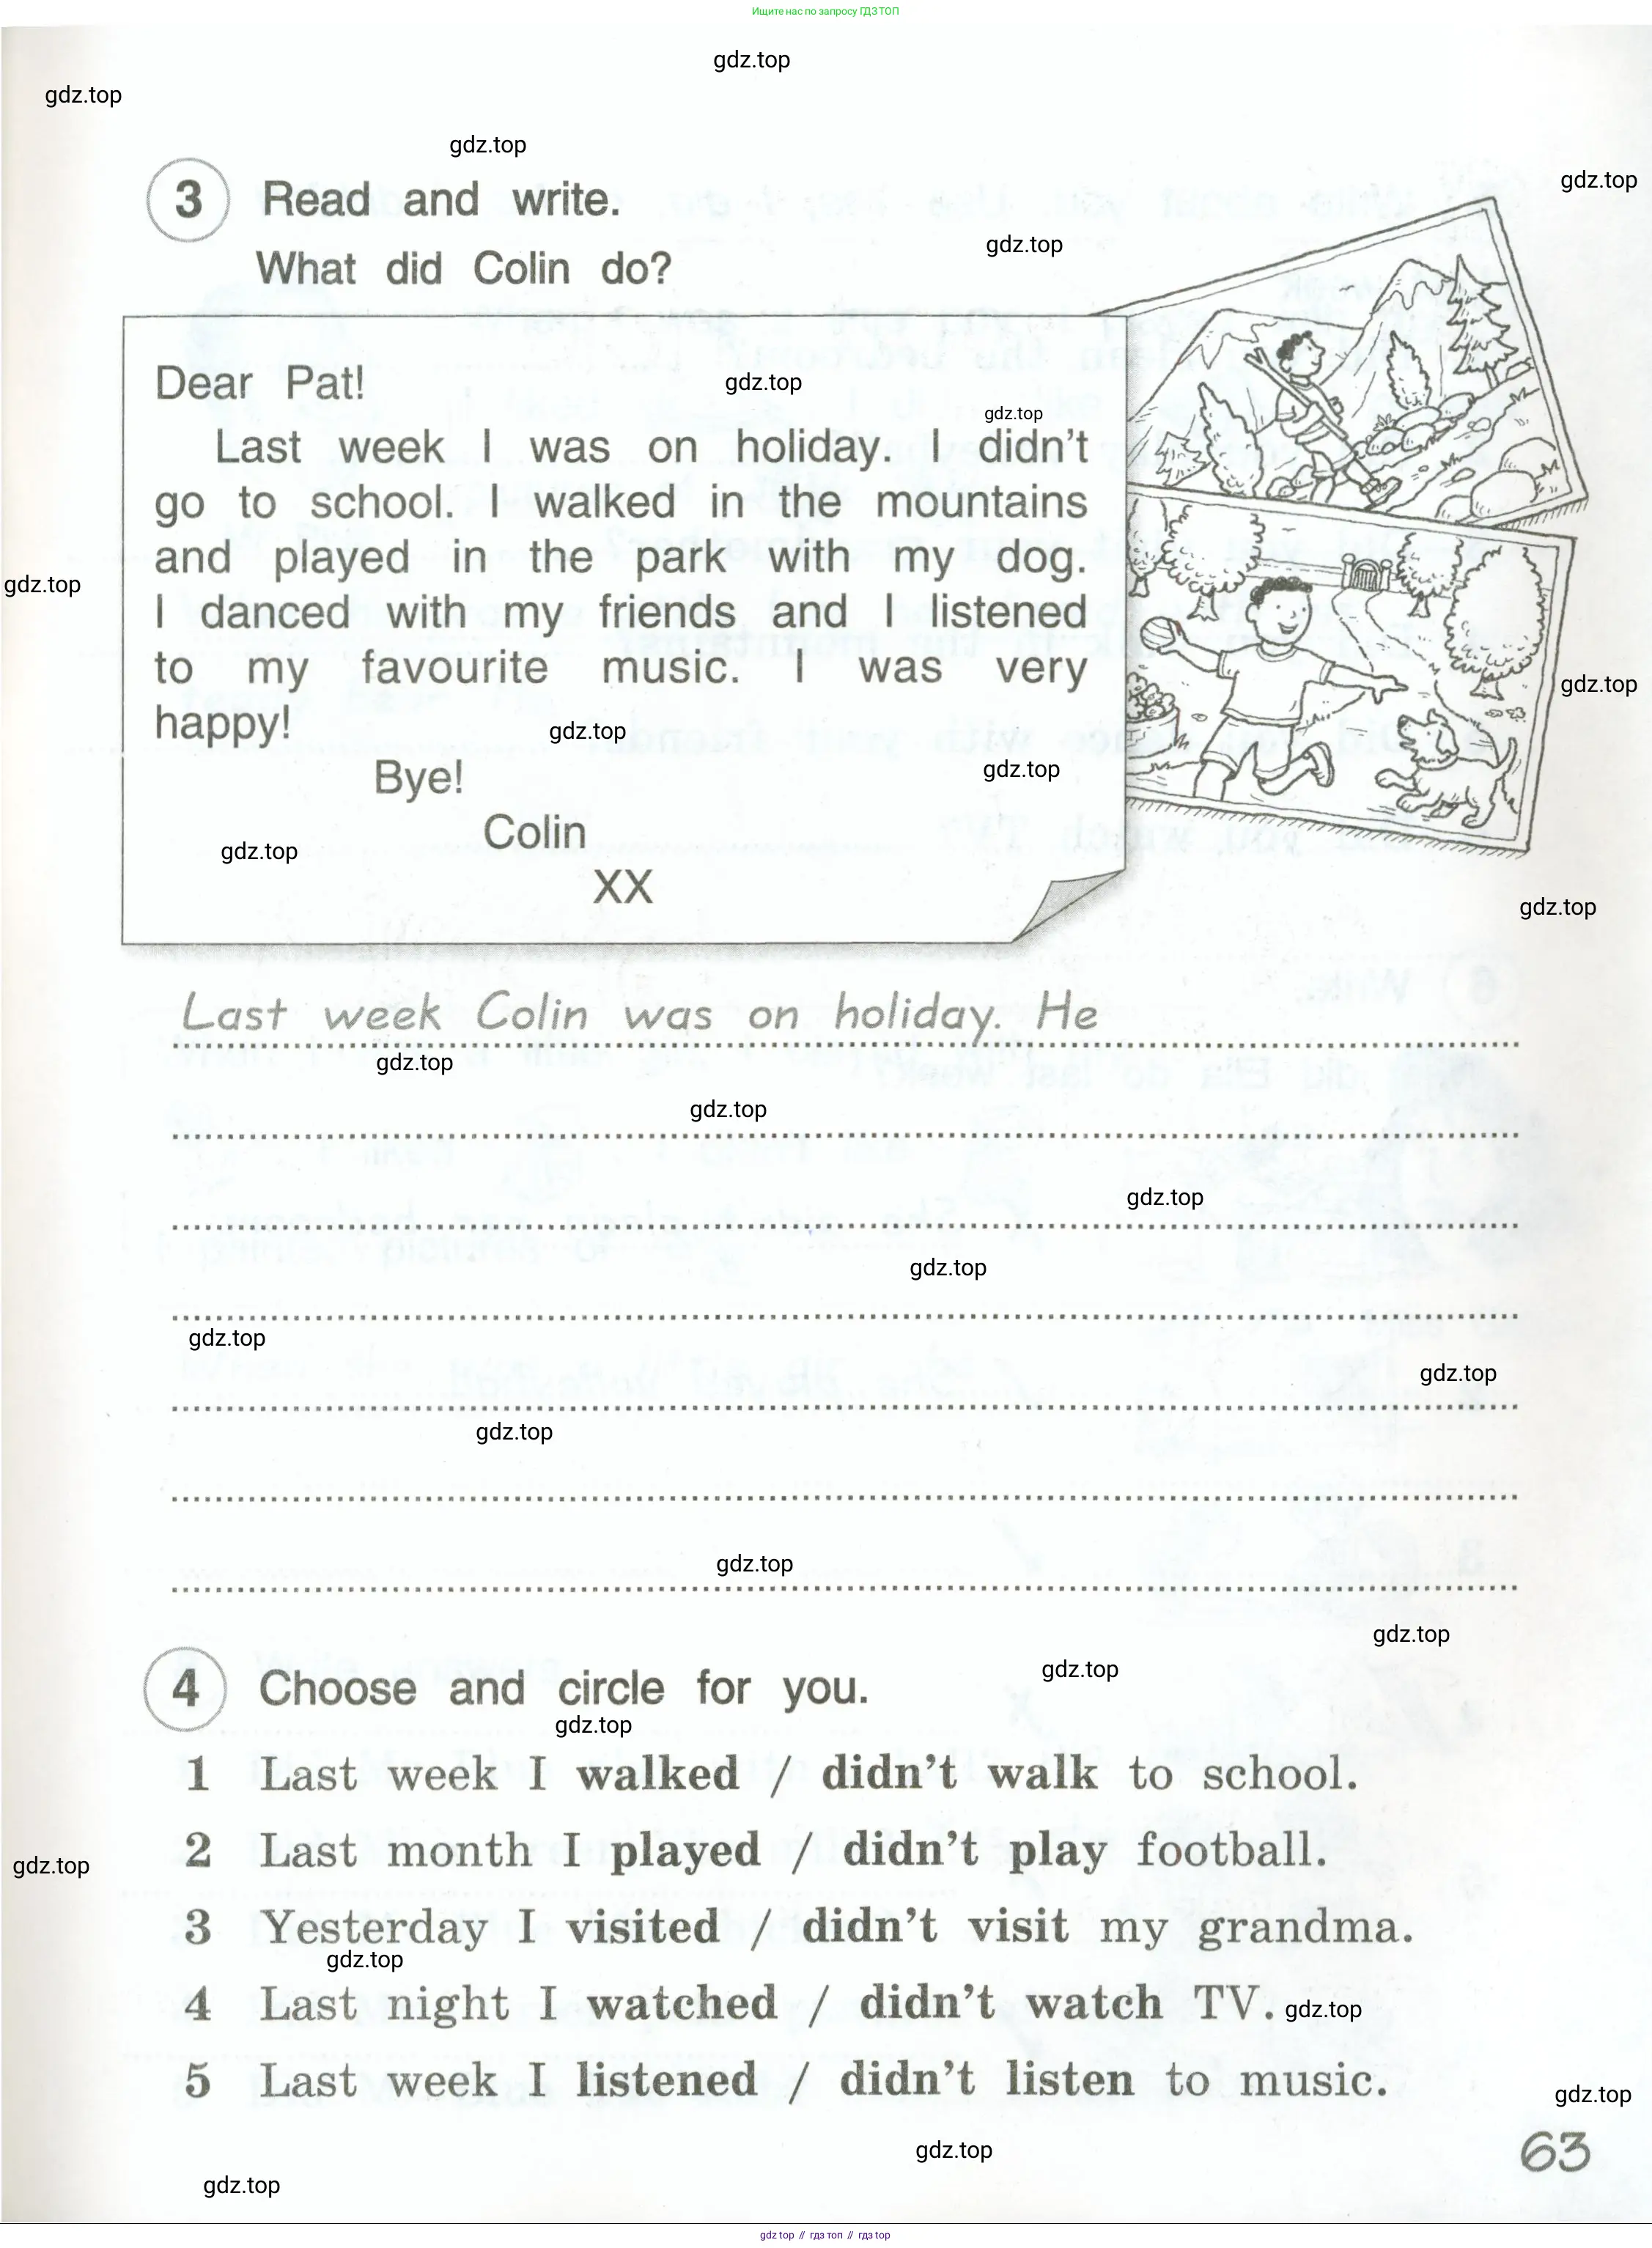 Ищите нас по запросу ГДЗ ТОП
gdz.top
gdz.top
gdz.top
gdz.top
3 Read and write.
gdz.top
What did Colin do?
Dear Pat!
gdz.top
gdz.top
Last week I was on holiday. I didn't
go to school. I walked in the mountains
and played in the park with my dog.
gdz.top
I danced with my friends and I listened
to my favourite music. I was very
gdz.top
happy!
gdz.top
Bye!
gdz.top
Colin
gdz.top
XX
gdz.top
Last week Colin was on holiday. He
gdz.top
gdz.top
gdz.top
gdz.top
gdz.top
gdz.top
gdz.top
gdz.top
gdz.top
4 Choose and circle for you.
gdz.top
gdz.top
1 Last week I walked / didn't walk to school.
2 Last month I played / didn't play football.
gdz.top
3 Yesterday I visited / didn't visit my grandma.
gdz.top
4 Last night I watched / didn't watch TV. gdz.top
5 Last week I listened / didn't listen to music.
gdz.top
63
gdz.top
gdz.top
gdz top // гдз топ // гдз top